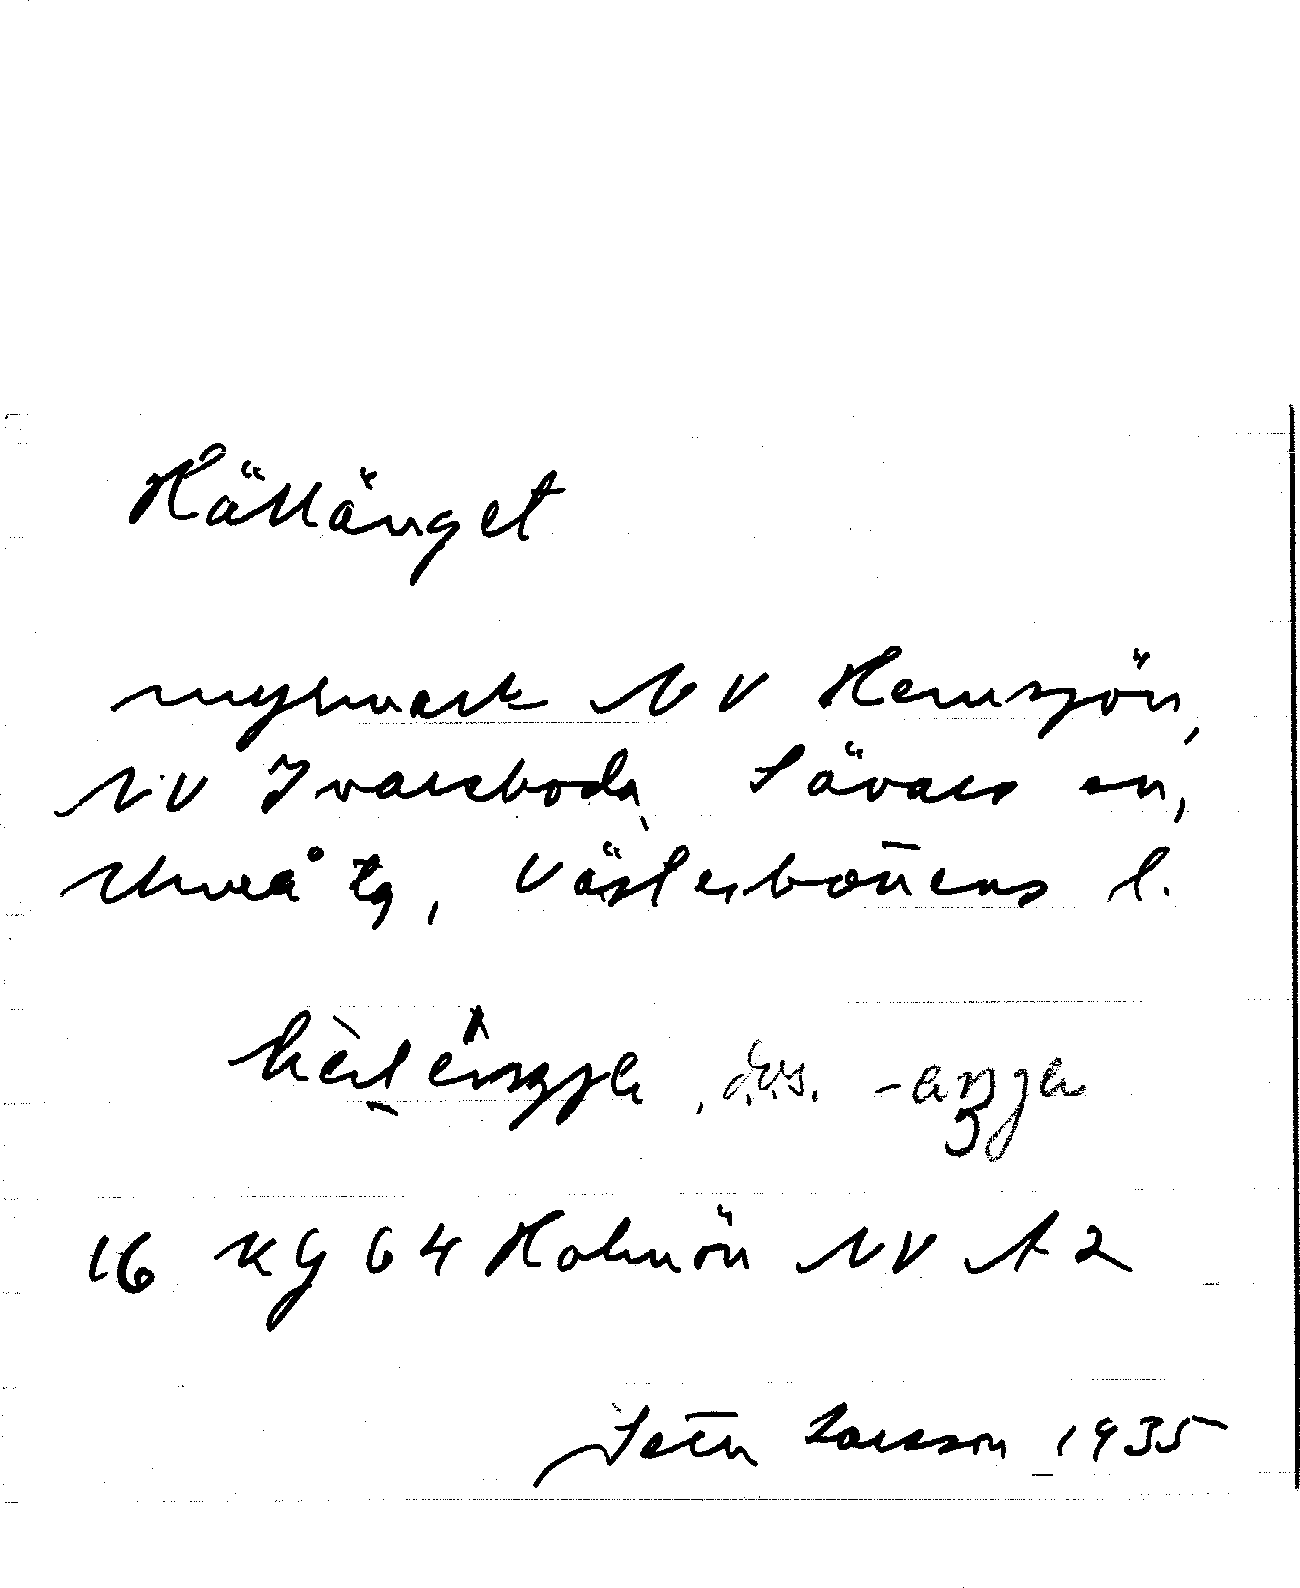 Hällänget
myrmark NV Hemsjön,
NV Ivarsboda, Sävars sn,
Umeå tg, Västerbottens l.
d.v.s. -anga
16 KG 64 Holmön NV A2
Seth Larsson 1935